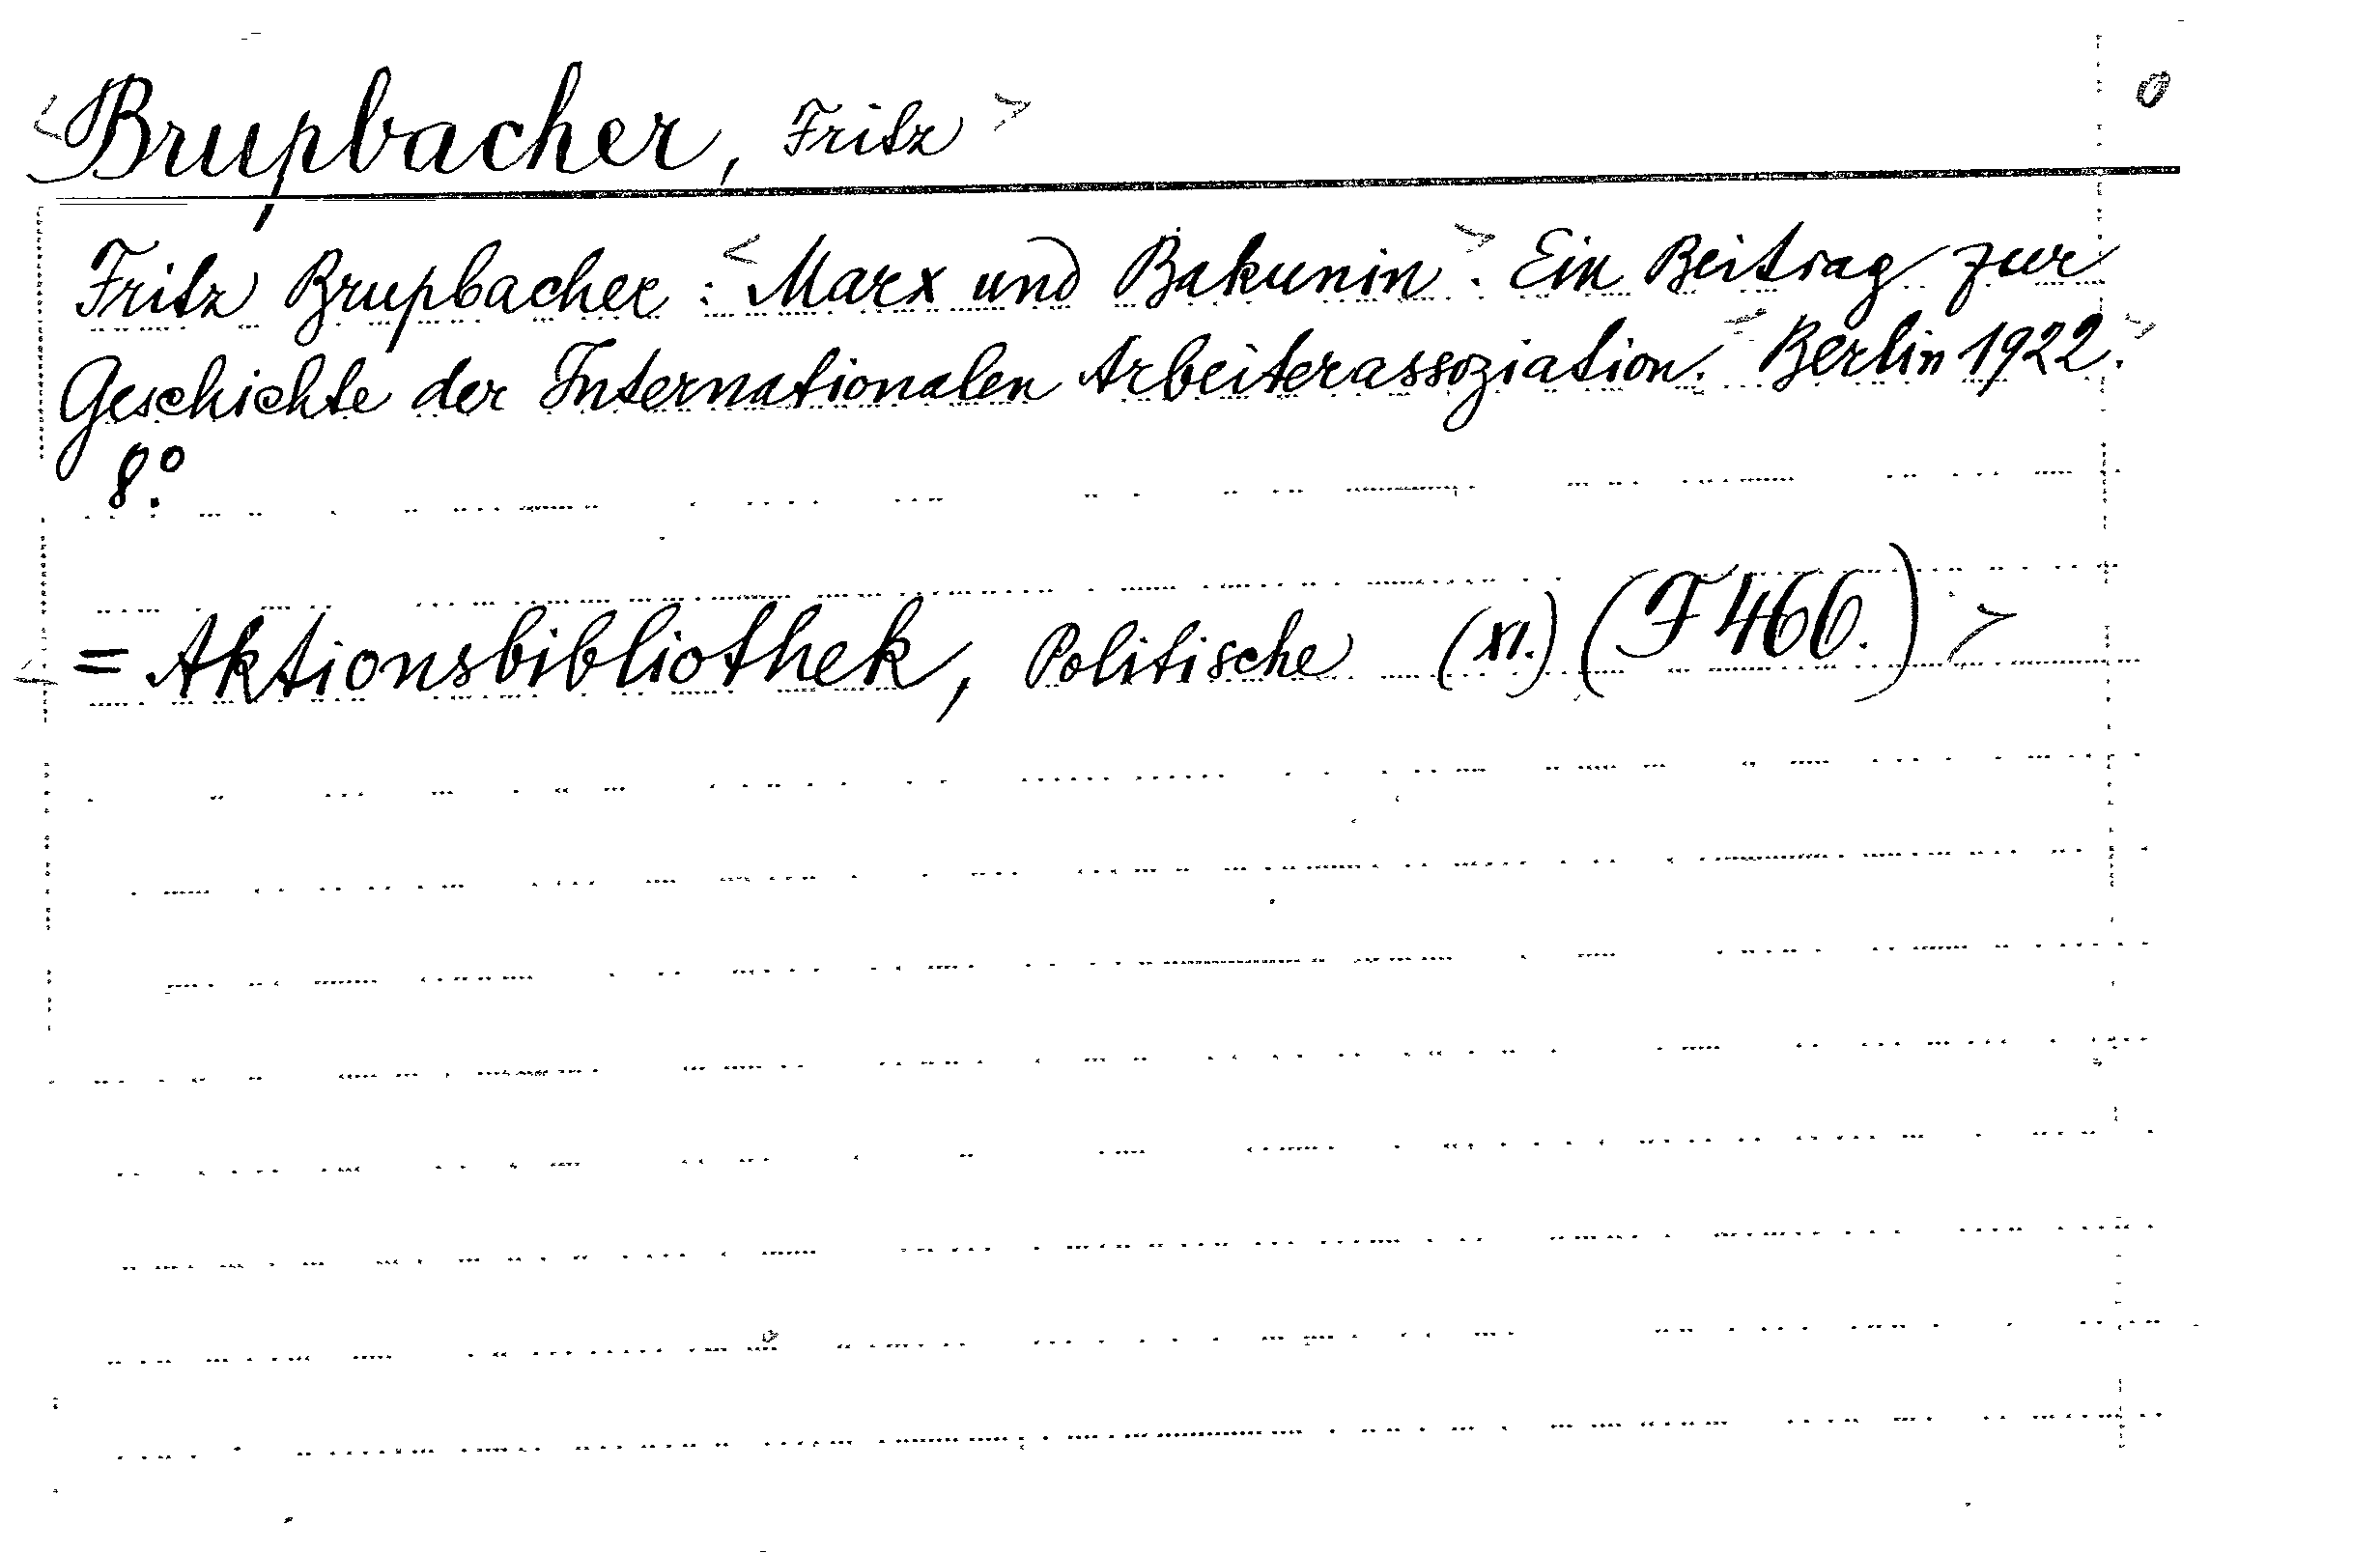 <Brupbacher, Fritz> 0
Fritz Brupbacher: <Marx und Bakunin>. Ein Beitrag zur
Geschichte der Internationalen Arbeiterassoziation. Berlin 1922.
8°.
= Aktionsbibliothek, Politische (XI.) (F 466.) >